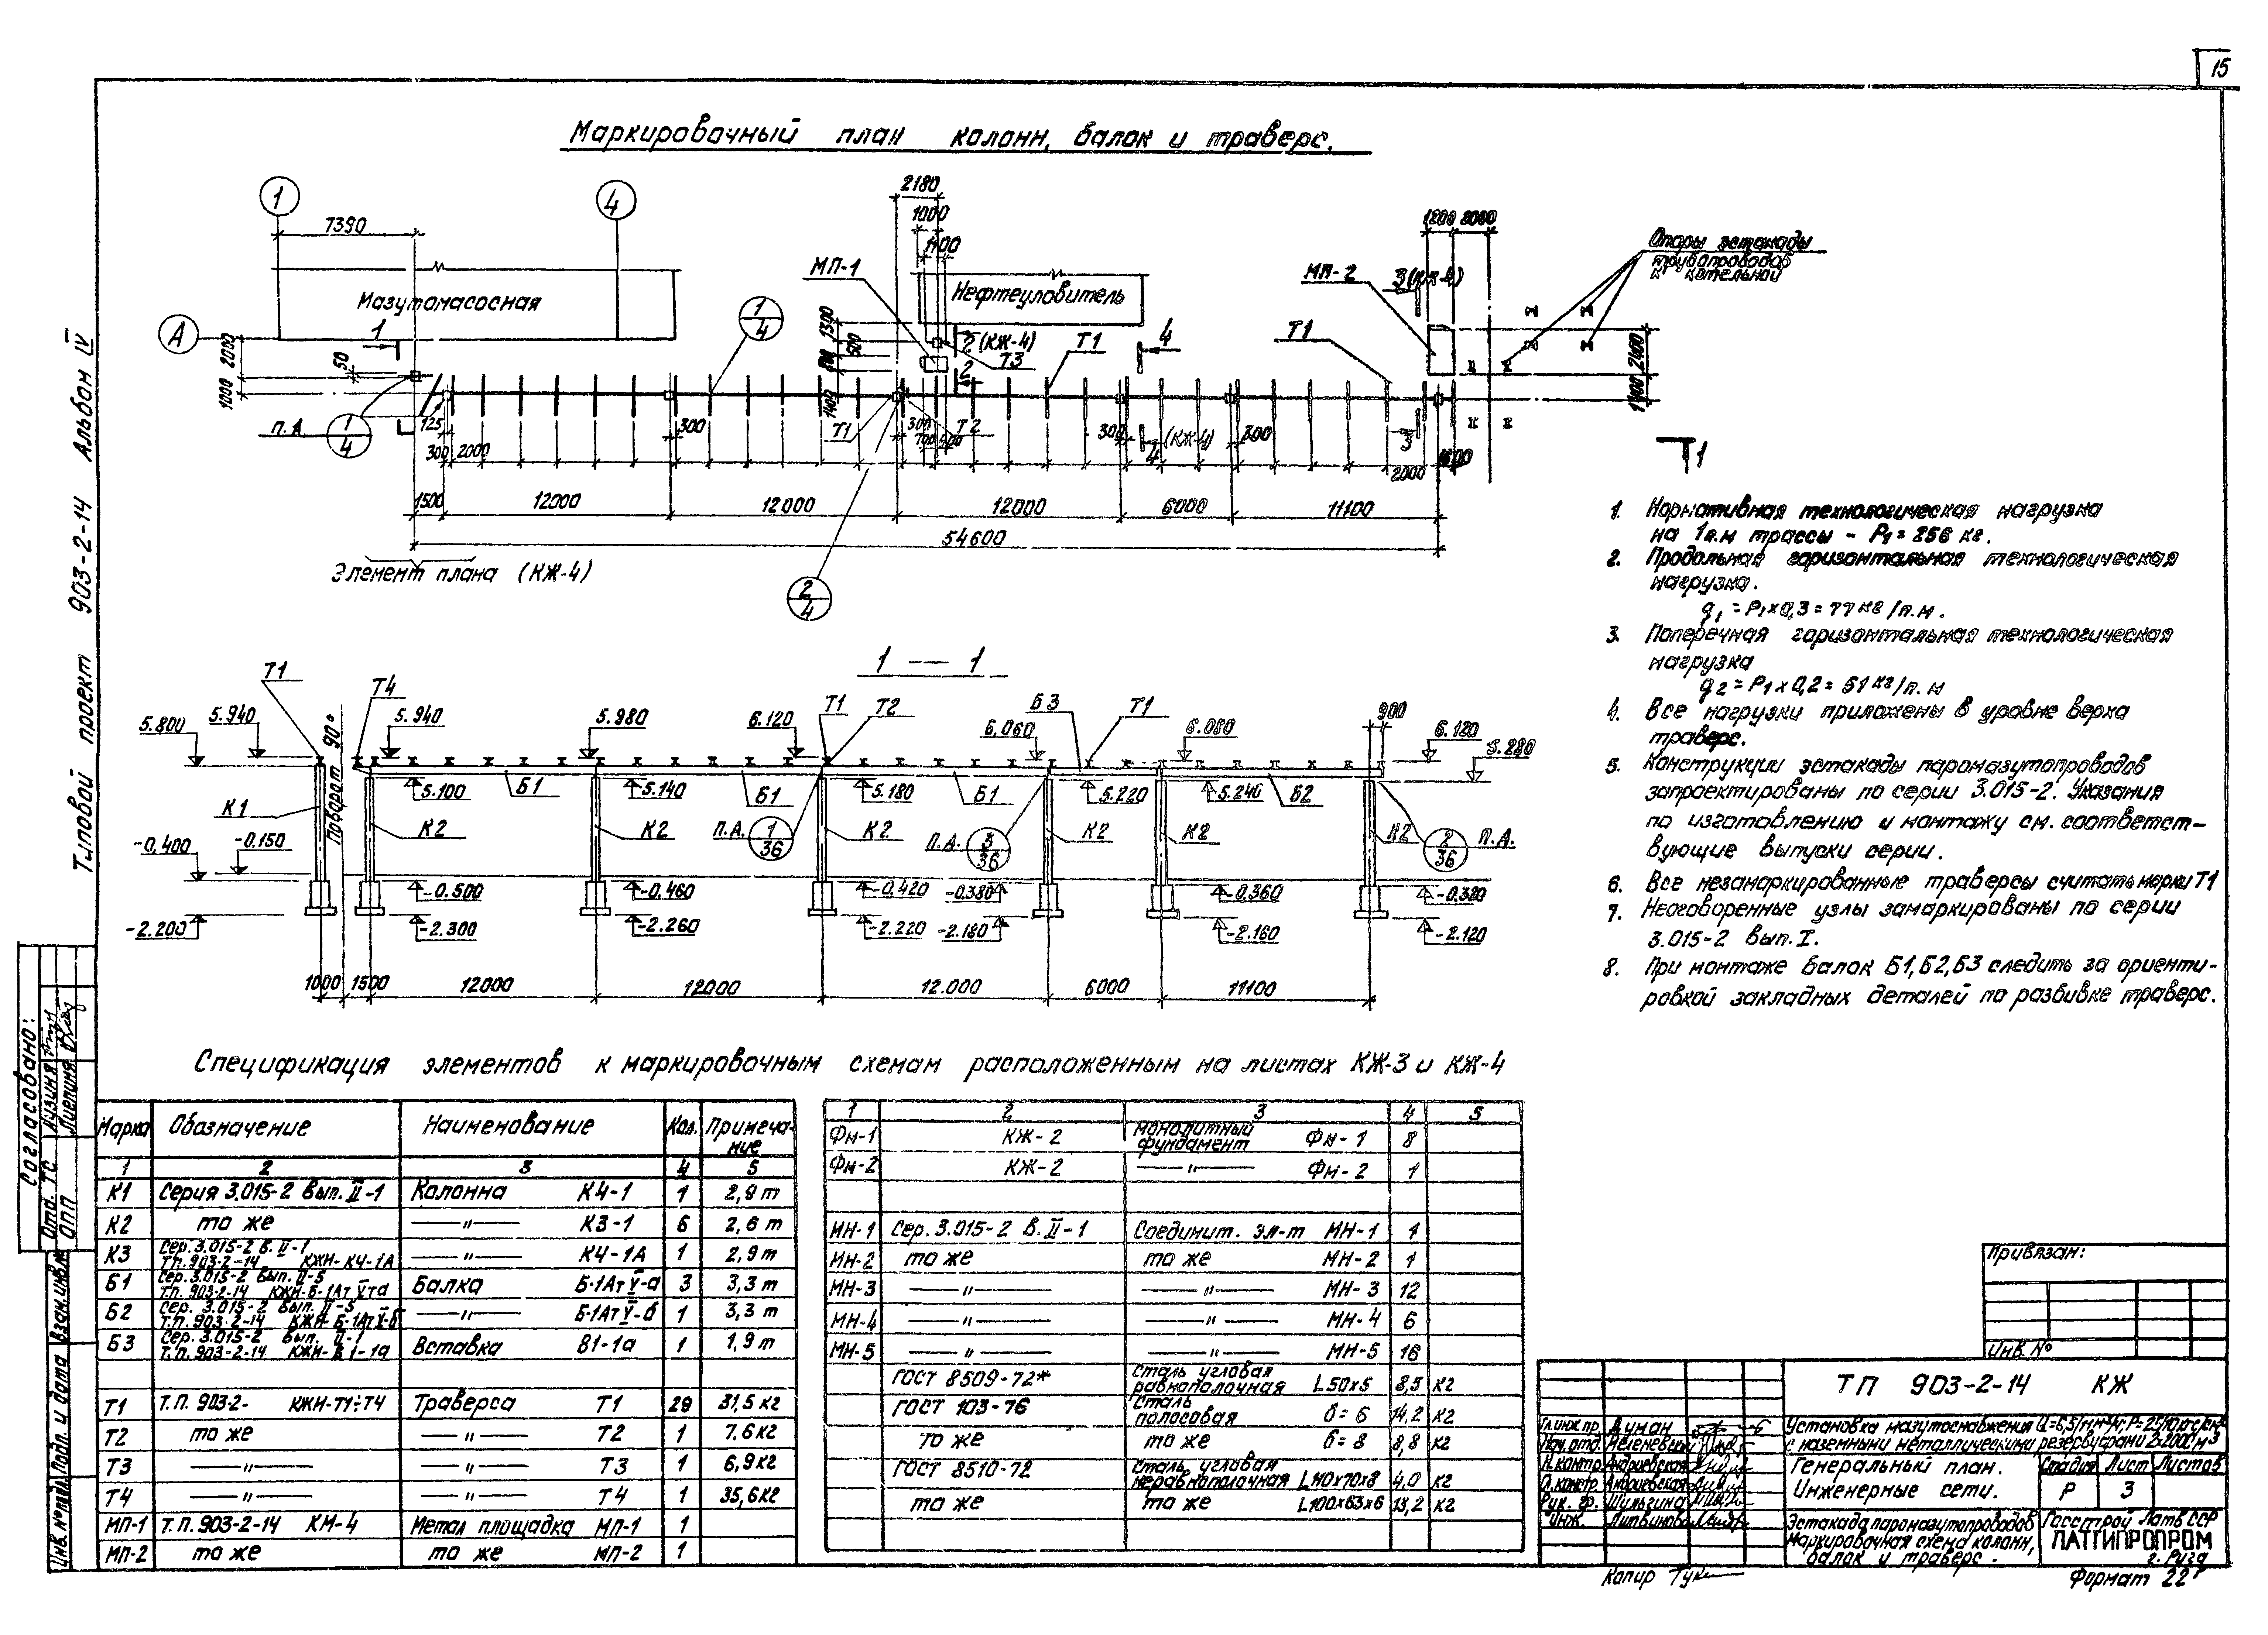 15
Маркировочный план колонн, балок и траверс.
1
4
7390
2180
1000
1100
1200 2000
Опоры эстакады
трубопроводов
к котельной
МП-1
МП-2
3 (КЖ-4)
Мазутонасосная
Нефтеуловитель
А
1
1/4
2 (КЖ-4)
Т3
Т1
4
Т1
2000
50
1000
1300
500
1400
2
2400
1400
п.А.
1/4
125
300 2000
300
Т1
300
700
Т2
300
4 (КЖ-4)
300
3
2000
1500
12000
12000
12000
6000
11100
54600
Элемент плана (КЖ-4)
2/4
Т1
1. Нормативная технологическая нагрузка
на 1п.м трассы - Р₁= 256 кг.
2. Продольная горизонтальная технологическая
нагрузка.
g₁ = Р₁х0,3 = 77 кг/п.м.
3. Поперечная горизонтальная технологическая
нагрузка
g₂ = Р₁х0,2 = 51 кг/п.м
4. Все нагрузки приложены в уровне верха
траверс.
5. Конструкции эстакады паромазутопроводов
запроектированы по серии 3.015-2. Указания
по изготовлению и монтажу см. соответст-
вующие выпуски серии.
6. Все незамаркированные траверсы считать марки Т1
7. Неоговоренные узлы замаркированы по серии
3.015-2 вып. I.
8. При монтаже балок Б1, Б2, Б3 следить за ориенти-
ровкой закладных деталей по разбивке траверс.
1 — 1
Т1
Т4
Т1
Т2
Б3
Т1
900
5.800
5.940
5.940
5.980
6.120
6.060
6.080
6.120
5.280
Поворот 90°
5.100
Б1
5.140
Б1
5.180
Б1
5.220
5.240
Б2
К1
К2
К2
П.А. 1/36
К2
П.А. 3/36
К2
К2
К2
2/36 П.А.
-0.400
-0.150
-0.500
-0.460
-0.420
-0.380
-0.360
-0.320
-2.200
-2.300
-2.260
-2.220
-2.180
-2.160
-2.120
1000 1500
12000
12000
12.000
6000
11100
Спецификация элементов к маркировочным схемам расположенным на листах КЖ-3 и КЖ-4
Марка Обозначение Наименование Кол. Примеча-
ние
1 2 3 4 5
К1 Серия 3.015-2 Вып. II-1 Колонна К4-1 1 2,9 т
К2 то же —"— К3-1 6 2,6 т
К3 Сер. 3.015-2 в. II-1
Т.п. 903-2-14 КЖИ-К4-1А —"— К4-1А 1 2,9 т
Б1 Сер. 3.015-2 вып. II-5
Т.п. 903-2-14 КЖИ-Б-1Ат Vта Балка Б-1Ат V-а 3 3,3 т
Б2 Сер. 3.015-2 вып. II-5
Т.п. 903-2-14 КЖИ-Б-1Ат V-б —"— Б-1Ат V-б 1 3,3 т
Б3 Сер. 3.015-2 вып. II-1
Т.п. 903-2-14 КЖИ-В1-1а Вставка В1-1а 1 1,9 т
Т1 Т.П. 903-2- КЖИ-Т1÷Т4 Траверса Т1 29 31,5 кг
Т2 то же —"— Т2 1 7.6 кг
Т3 —"— —"— Т3 1 6,9 кг
Т4 —"— —"— Т4 1 35,6 кг
МП-1 Т.п. 903-2-14 КМ-4 Метал площадка МП-1 1
МП-2 то же то же МП-2 1
1 2 3 4 5
Фм-1 КЖ-2 монолитный
фундамент Фм-1 8
Фм-2 КЖ-2 —"— Фм-2 1
МН-1 Сер. 3.015-2 в. II-1 Соединит. эл-т МН-1 1
МН-2 то же то же МН-2 1
МН-3 —"— —"— МН-3 12
МН-4 —"— —"— МН-4 6
МН-5 —"— —"— МН-5 16
ГОСТ 8509-72* Сталь угловая
равнополочная L50х5 8,5 кг
ГОСТ 103-76 Сталь
полосовая δ=6 14,2 кг
то же то же δ=8 8,8 кг
ГОСТ 8510-72 сталь угловая
неравнополочная L110х70х8 4,0 кг
то же то же L100х63х6 13,2 кг
Привязан:
Инв. №
ТП 903-2-14 КЖ
Гл.инж.пр. Думан
Нач. отд. Меленевский
Н.контр. Андриевская
П.контр. Андриевская
Рук. гр. Шильгина
Инж. Литвинова
Установка мазутоснабжения
с наземными металлическими резервуарами 2х2000 м³
Генеральный план.
Инженерные сети.
Стадия Лист Листов
Р 3
Эстакада паромазутопроводов
Маркировочная схема колонн,
балок и траверс.
Госстрой Латв ССР
ЛАТГИПРОПРОМ
г. Рига
Копир
Формат 22 г
Типовой проект 903-2-14 Альбом IV
Согласовано:
Отд. ТС
ОПП
Инв. № подл. Подп. и дата Взам. инв. №